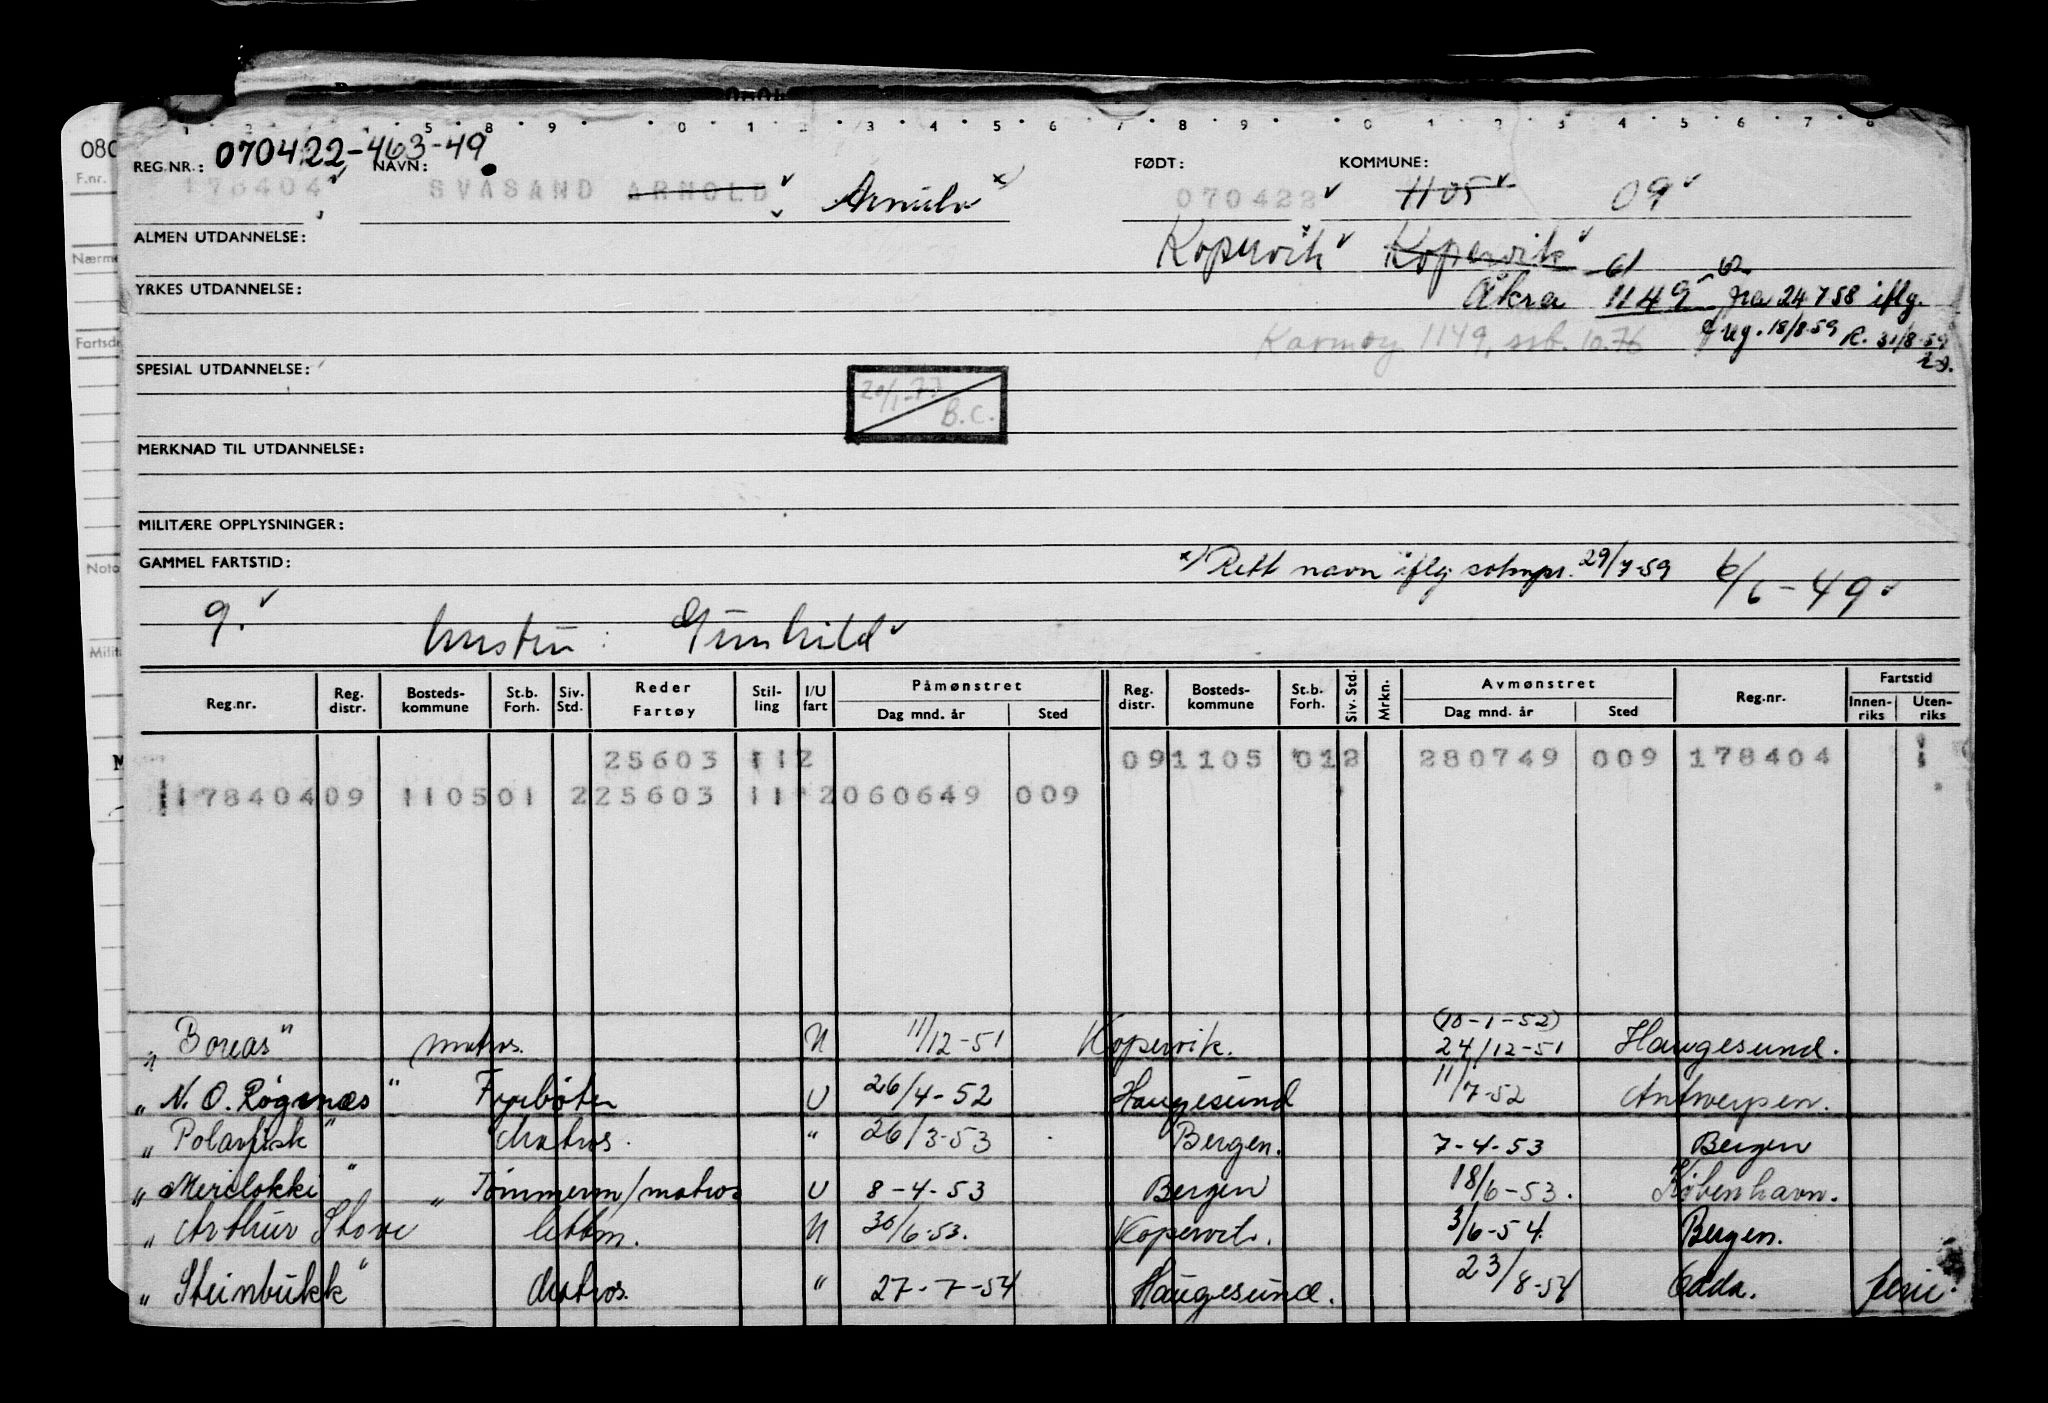 REG.NR.: 070422-463-49 NAVN: FØDT: KOMMUNE:
178404 SVASAND ARNOLD 070422 1105 09
ALMEN UTDANNELSE: Kopervik Kopervik
YRKES UTDANNELSE: Åkra 1149 fra 24 7 58 iflg.
Karmøy 1149, ssb. 10.76 18/8-59 R. 31/8-59
SPESIAL UTDANNELSE:
20/1-77
B.C.
MERKNAD TIL UTDANNELSE:
MILITÆRE OPPLYSNINGER:
GAMMEL FARTSTID: x) Rett navn iflg. 29/7-59 6/6-49
g. hustru: Gunhild
Reg.nr. Reg. distr. Bosteds-kommune St.b. Forh. Siv. Std. Reder Fartøy Stil-ling I/U fart Påmønstret Dag mnd. år Sted Reg. distr. Bosteds-kommune St.b. Forh. Siv. Std. Mrkn. Avmønstret Dag mnd. år Sted Reg.nr. Fartstid Innen-riks Uten-riks
25603 112 091105 012 280749 009 178404 1
117840409 110501 225603 11 2060649 009
(10-1-52)
"Boreas" matros. N 11/12-51 Kopervik. 24/12-51 Haugesund.
"N. O. Røgenæs" Fyrbøter U 26/4-52 Haugesund 11/7-52 Antwerpen.
"Polarfisk" Matros. " 26/3-53 Bergen. 7-4-53 Bergen
"Merclokki" Tømmerm/matros U 8-4-53 Bergen 18/6-53. København.
"Arthur Stove" lettm. N 30/6-53. Kopervik. 3/6-54. Bergen.
"Steinbukk" Matros. " 27-7-54 Haugesund. 23/8-54 Odda. ferie.